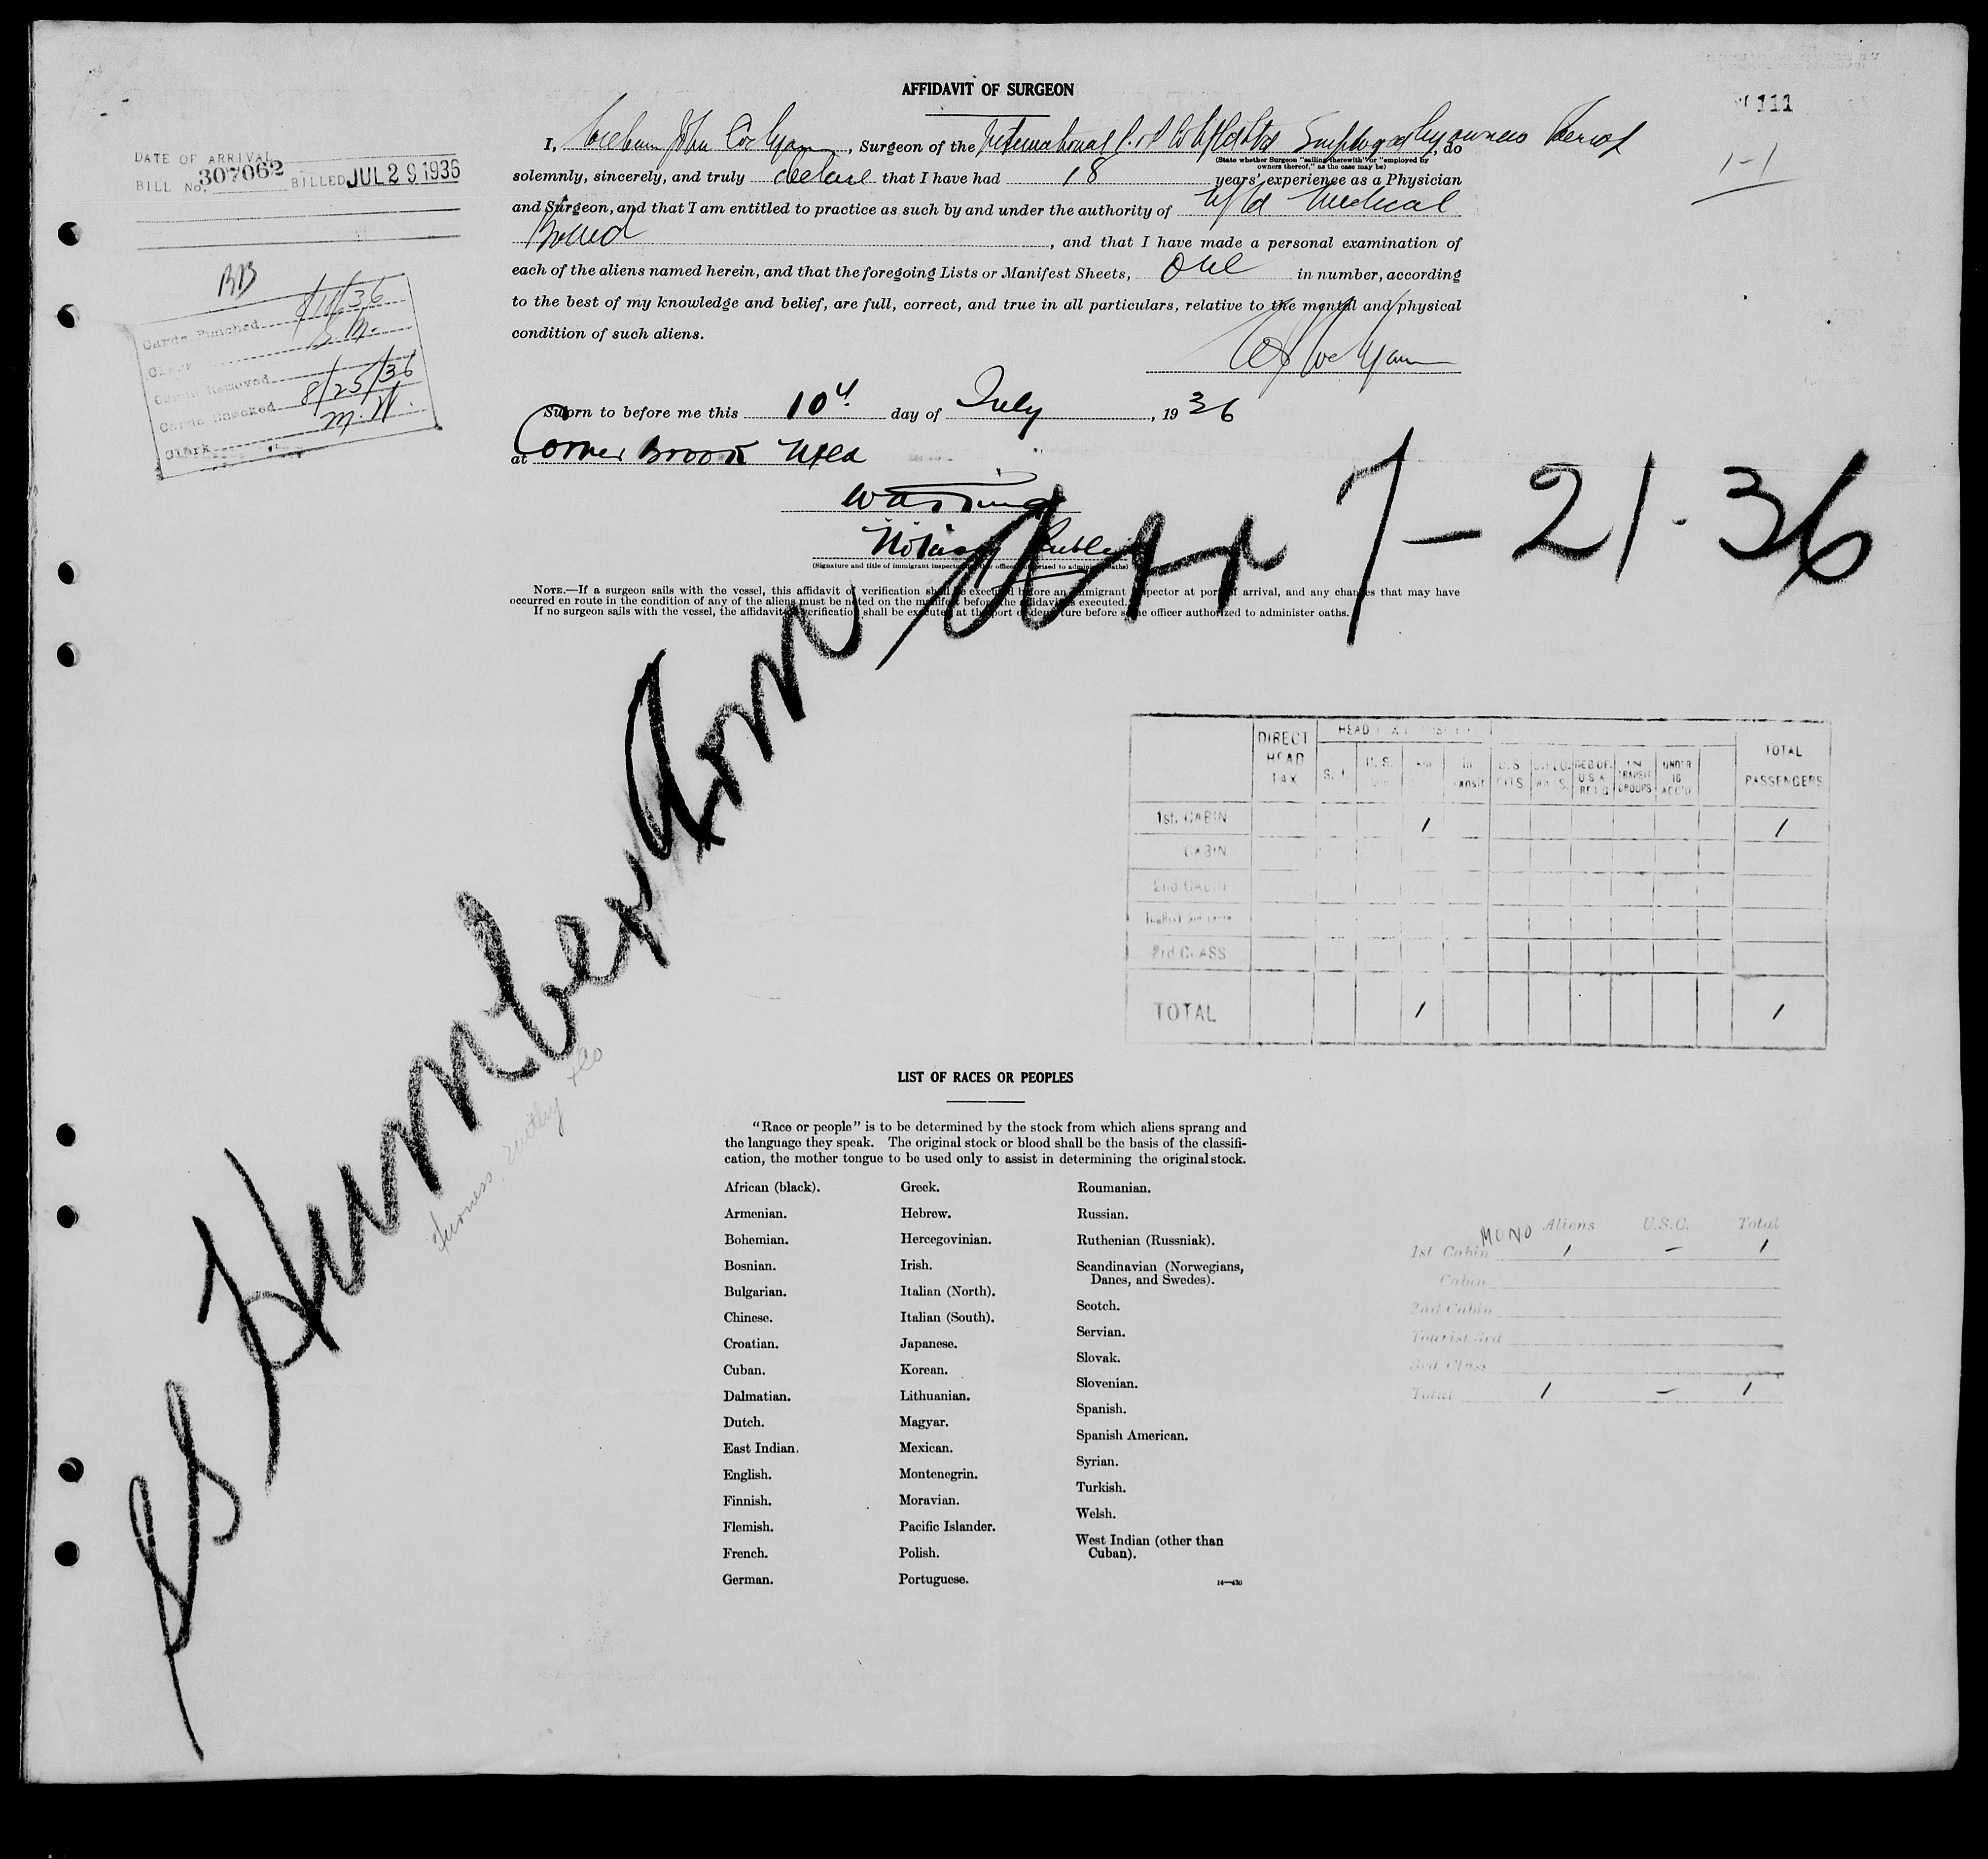 AFFIDAVIT OF SURGEON
111
1-1
I, John, Surgeon of the International Employed by owners thereof, do
(State whether Surgeon "sailing therewith" or "employed by
owners thereof," as the case may be)
solemnly, sincerely, and truly declare that I have had 18 years' experience as a Physician
and Surgeon, and that I am entitled to practice as such by and under the authority of Nfld Medical
Board, and that I have made a personal examination of
each of the aliens named herein, and that the foregoing Lists or Manifest Sheets, One in number, according
to the best of my knowledge and belief, are full, correct, and true in all particulars, relative to the mental and physical
condition of such aliens.
Sworn to before me this 10th day of July, 1936
at Corner Brook Nfld
Notary Public
(Signature and title of immigrant inspector or other officer authorized to administer oaths)
NOTE.—If a surgeon sails with the vessel, this affidavit or verification shall be executed before an immigrant inspector at port of arrival, and any changes that may have
occurred en route in the condition of any of the aliens must be noted on the manifest before the affidavit is executed.
If no surgeon sails with the vessel, the affidavit or verification shall be executed at the port of departure before some officer authorized to administer oaths.
DATE OF ARRIVAL
BILL No. 307062 BILLED JUL 29 1936
BB
Cards Punched 8/11/36
Clerk S M.
Cards Removed
Cards Checked 8/25/36
Clerk M.W.
SS Humber Arm Arr 7-21-36
Furness, Withy & Co
DIRECT HEAD TAX
HEAD TAX
TOTAL PASSENGERS
S. I.
U. S.
In Transit
U.S. CITS
IN TRANSIT GROUPS
UNDER 16 ACC'D
1st. CABIN 1 1
CABIN
2nd CABIN
3rd CLASS
TOTAL 1 1
LIST OF RACES OR PEOPLES
"Race or people" is to be determined by the stock from which aliens sprang and
the language they speak. The original stock or blood shall be the basis of the classifi-
cation, the mother tongue to be used only to assist in determining the original stock.
African (black).
Armenian.
Bohemian.
Bosnian.
Bulgarian.
Chinese.
Croatian.
Cuban.
Dalmatian.
Dutch.
East Indian.
English.
Finnish.
Flemish.
French.
German.
Greek.
Hebrew.
Hercegovinian.
Irish.
Italian (North).
Italian (South).
Japanese.
Korean.
Lithuanian.
Magyar.
Mexican.
Montenegrin.
Moravian.
Pacific Islander.
Polish.
Portuguese.
Roumanian.
Russian.
Ruthenian (Russniak).
Scandinavian (Norwegians,
Danes, and Swedes).
Scotch.
Servian.
Slovak.
Slovenian.
Spanish.
Spanish American.
Syrian.
Turkish.
Welsh.
West Indian (other than
Cuban).
MONO Aliens U.S.C. Total
1st Cabin 1 – 1
Cabin
2nd Cabin
Tourist 3rd
3rd Class
Total 1 – 1